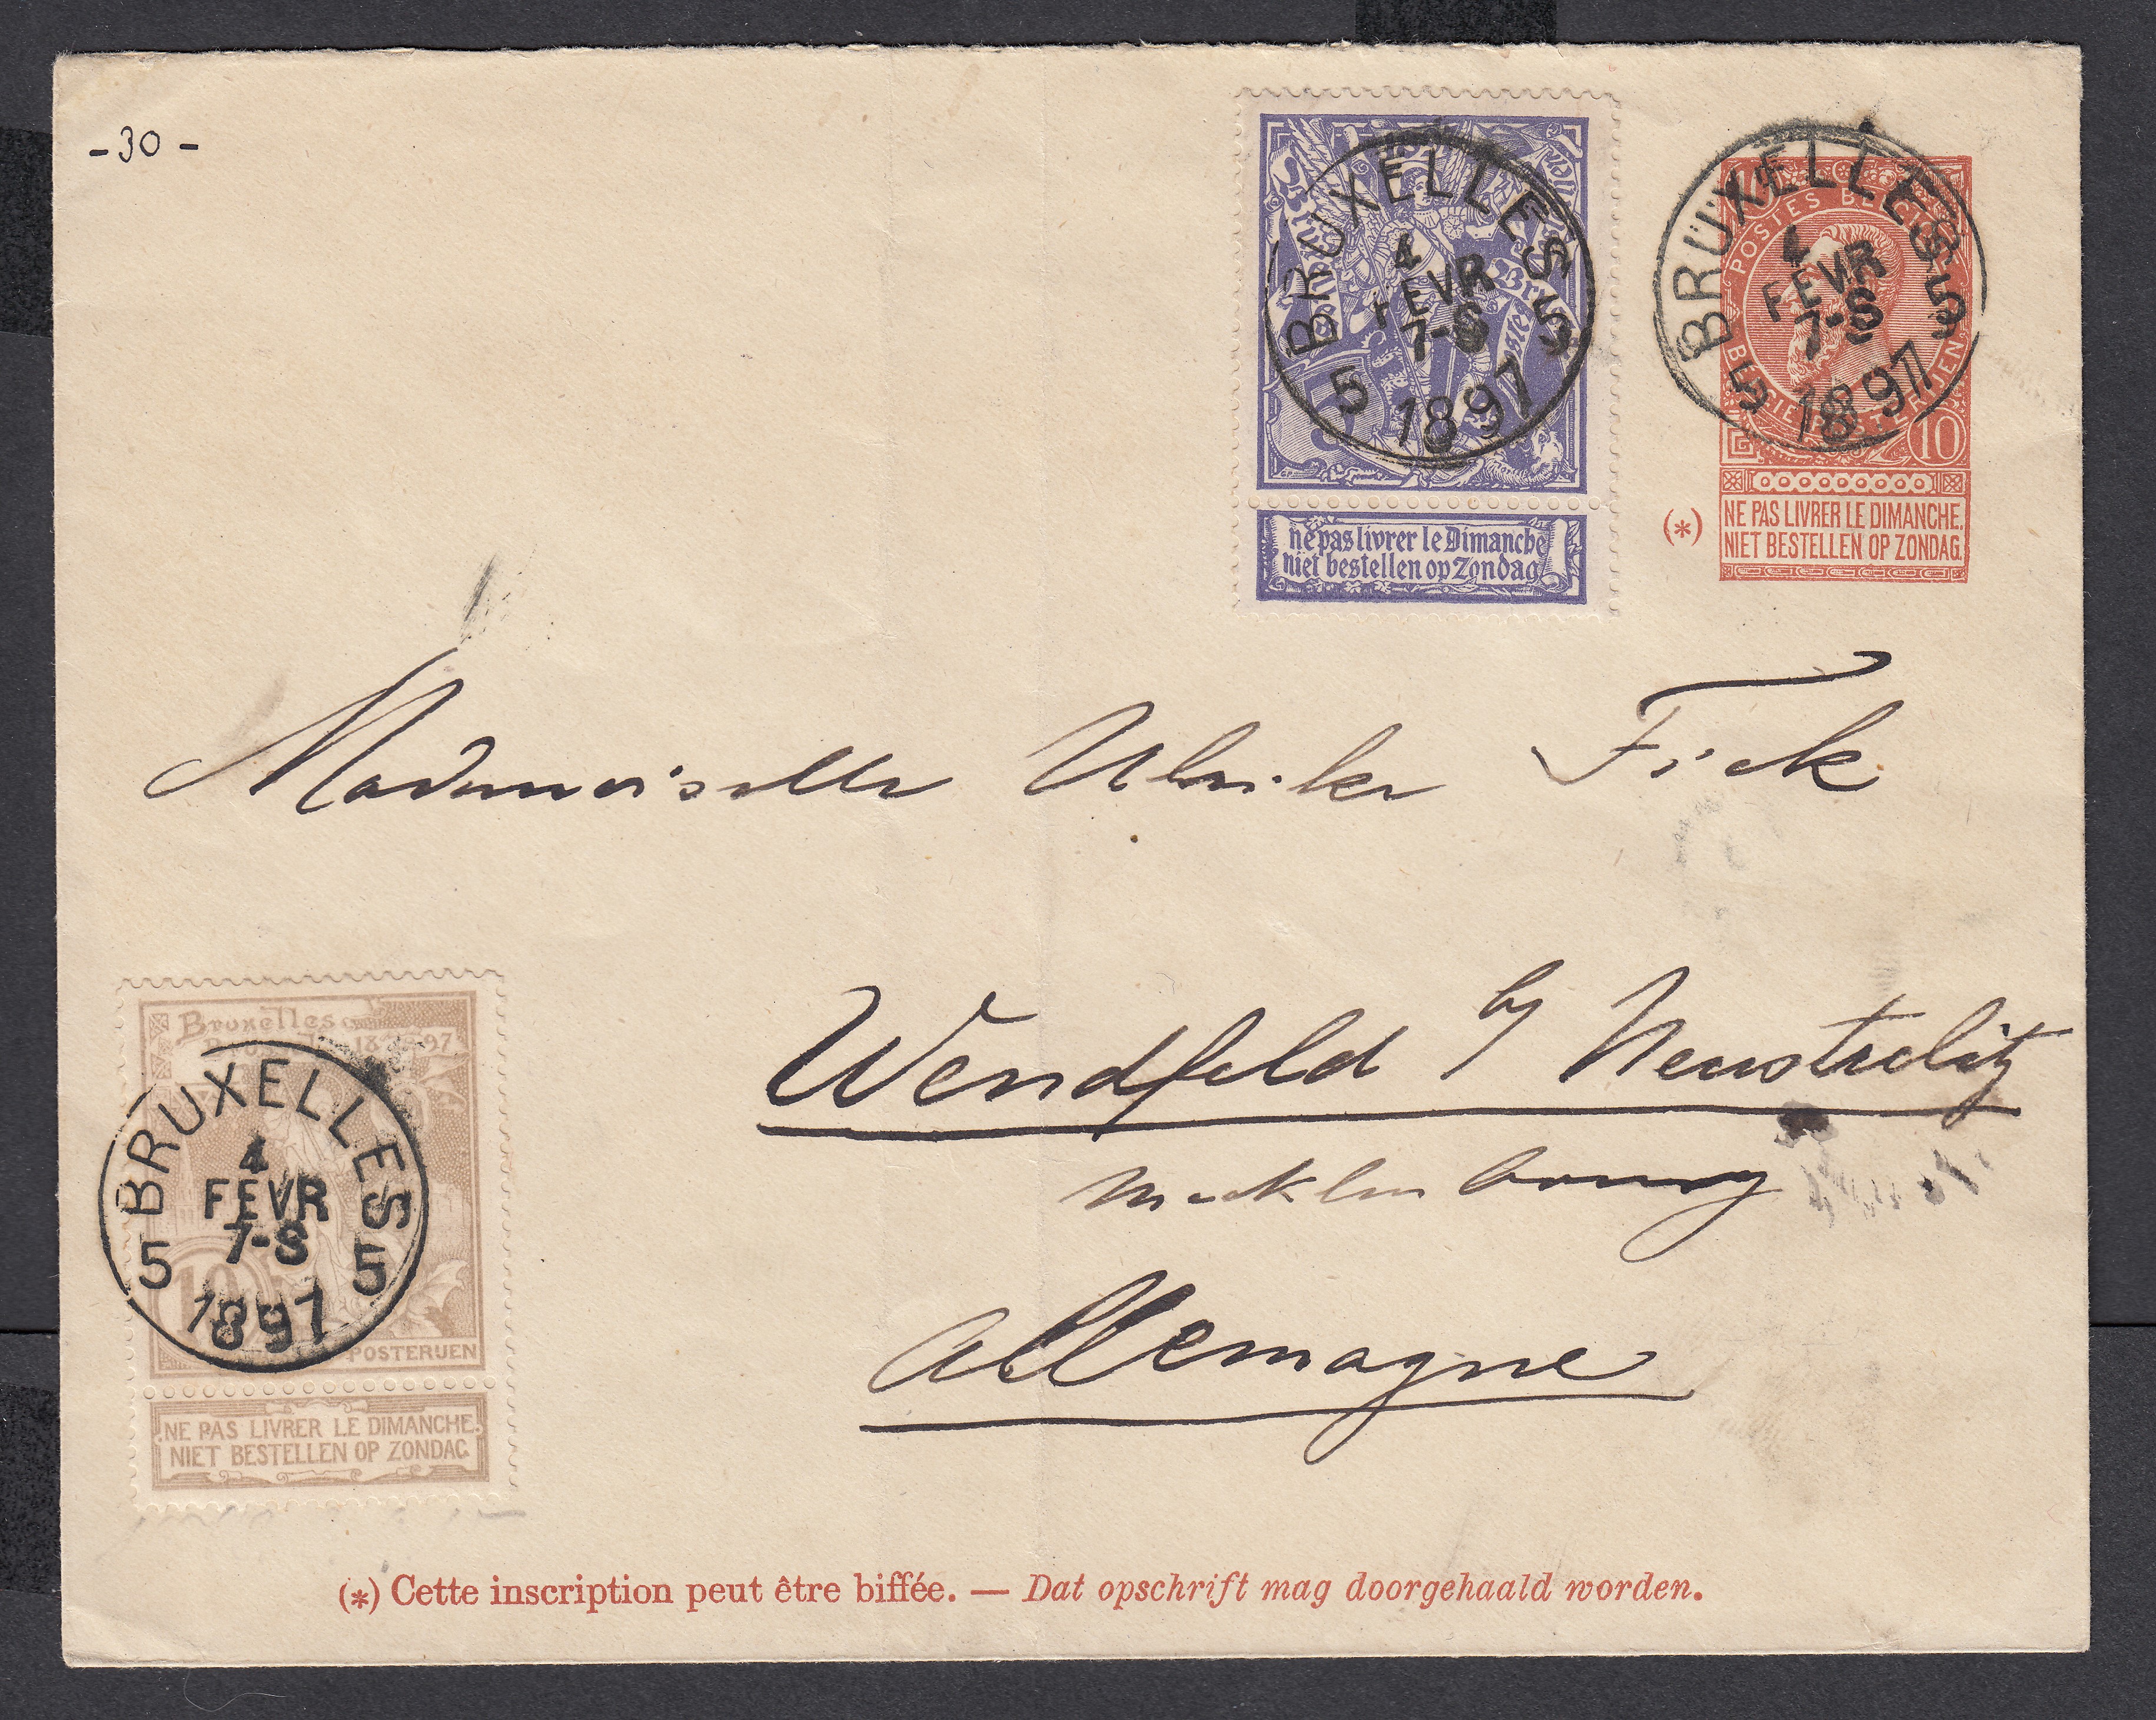 -30-
BRUXELLES
4
FEVR
7-S
5 1897 5
ne pas livrer le Dimanche
niet bestellen op Zondag
POSTES BELGIQUE
BELGIE POSTERIJEN
10
BRUXELLES
4
FEVR
7-S
5 1897 5
(*)
NE PAS LIVRER LE DIMANCHE.
NIET BESTELLEN OP ZONDAG.
Mademoiselle Ulrike Fick
Wendfeld by Neustrelitz
Mecklenbourg
Allemagne
Bruxelles
1897
BRUXELLES
4
FEVR
7-S
5 1897 5
10
POSTERIJEN
NE PAS LIVRER LE DIMANCHE.
NIET BESTELLEN OP ZONDAG
(*) Cette inscription peut être biffée. — Dat opschrift mag doorgehaald worden.